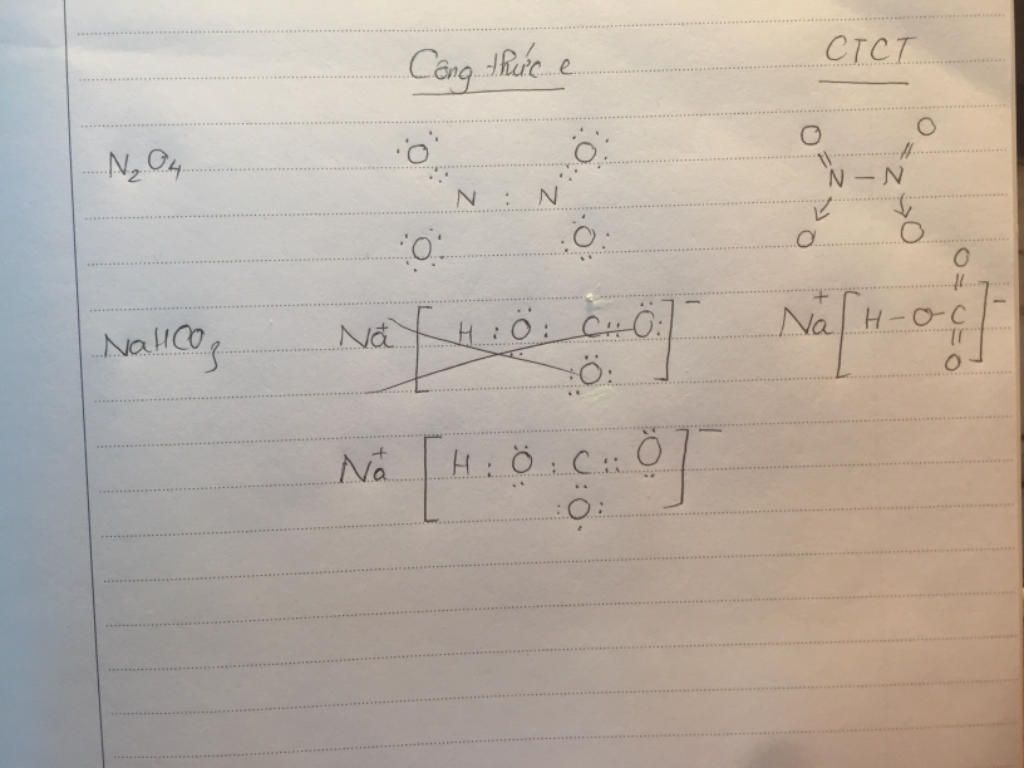 Công thức e CTCT
O O O O
N2O4 N : N N – N
O O O O
O
NaHCO3 Na+ [ H : O : C :: O ]– Na+ [ H – O – C ]–
O O
Na+ [ H : O : C :: O ]–
O